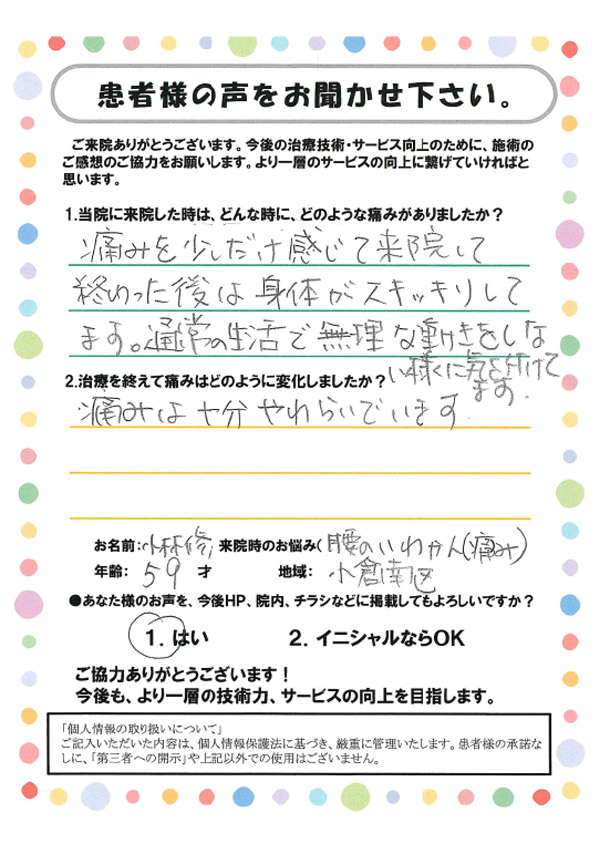 患者様の声をお聞かせ下さい。
ご来院ありがとうございます。今後の治療技術・サービス向上のために、施術の
ご感想のご協力をお願いします。より一層のサービスの向上に繋げていければと
思います。
1.当院に来院した時は、どんな時に、どのような痛みがありましたか？
痛みを少しだけ感じて来院して
終わった後は身体がスキッキリして
ます。通常の生活で無理な動きをしな
い様に気を付けて
ます.
2.治療を終えて痛みはどのように変化しましたか？
痛みは十分やわらいでいます.
お名前:小林修 来院時のお悩み(腰のいわかん(痛み)
年齢: 59 才 地域: 小倉南区
●あなた様のお声を、今後HP、院内、チラシなどに掲載してもよろしいですか？
1. はい 2. イニシャルならOK
ご協力ありがとうございます！
今後も、より一層の技術力、サービスの向上を目指します。
「個人情報の取り扱いについて」
ご記入いただいた内容は、個人情報保護法に基づき、厳重に管理いたします。患者様の承諾な
しに、「第三者への開示」や上記以外での使用はございません。